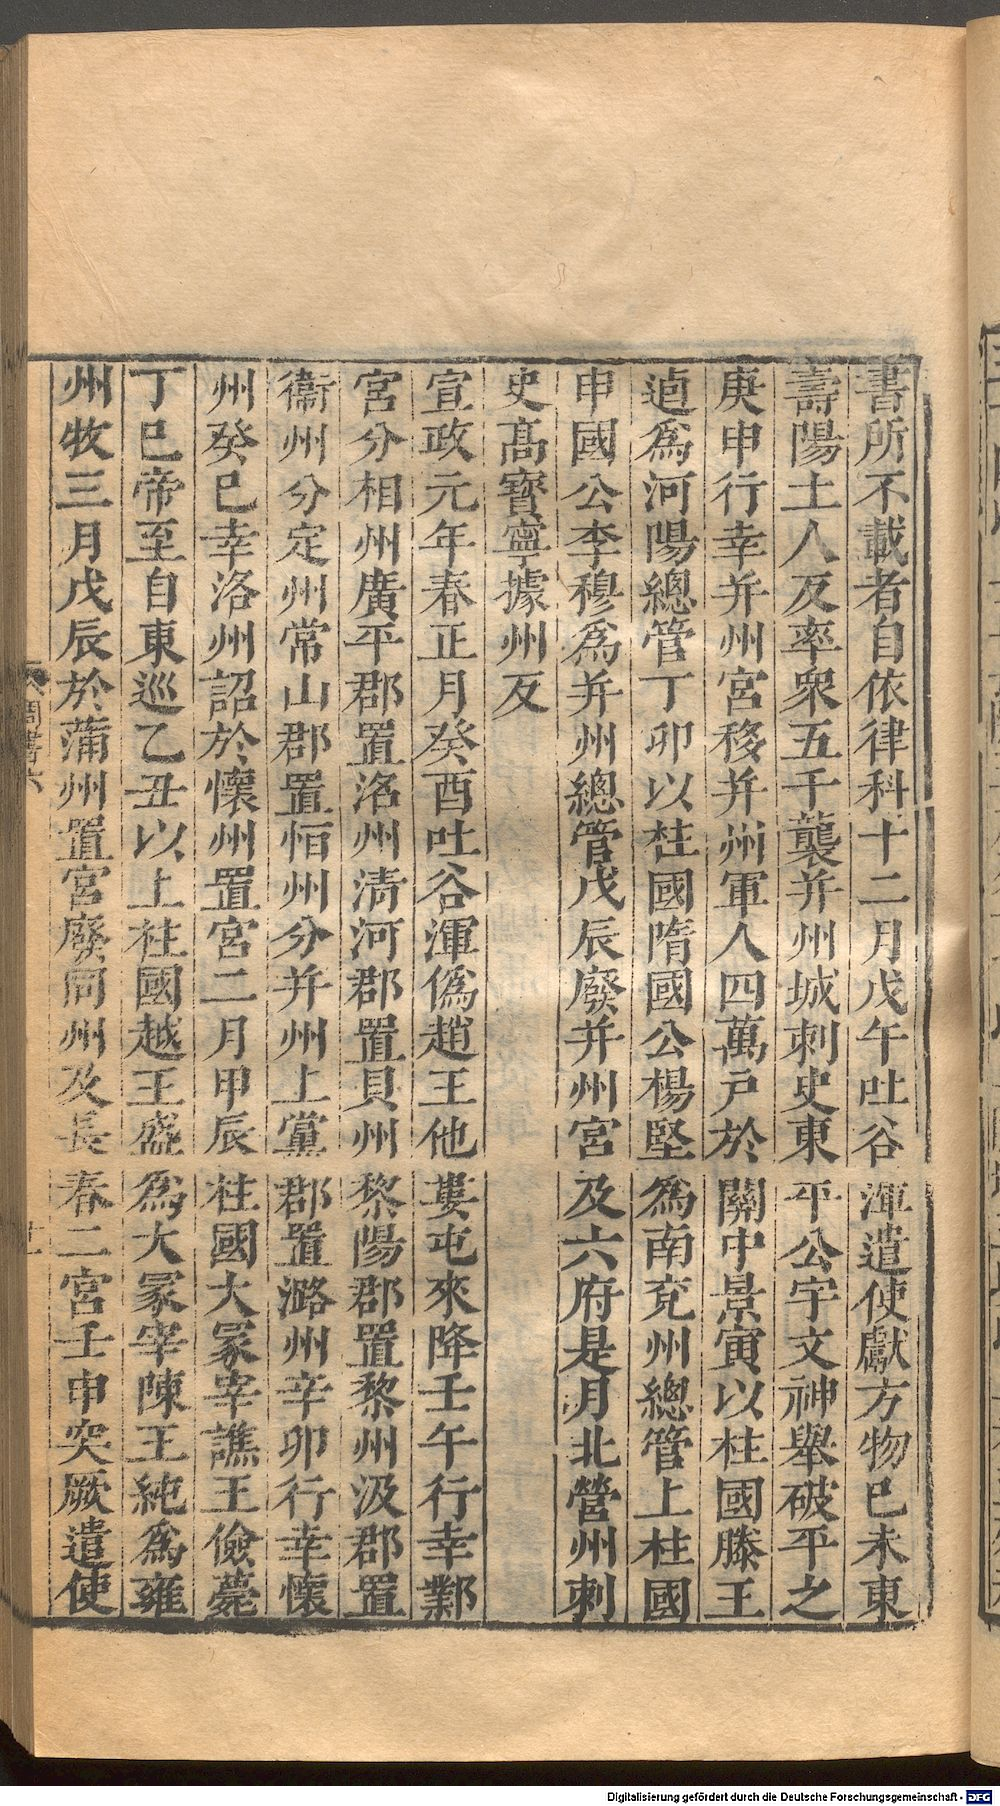 書所不載者自依律科十二月戊午吐谷渾遣使獻方物已未東
壽陽土人反率衆五千襲并州城刺史東平公宇文神舉破平之
庚申行幸并州宮移并州軍人四萬戸於關中景寅以柱國滕王
逌爲河陽總管丁卯以柱國隋國公楊堅爲南兖州總管上柱國
申國公李穆爲并州總管戊辰廢并州宮及六府是月北營州刺
史髙寶寧據州反
宣政元年春正月癸酉吐谷渾僞趙王他婁屯來降壬午行幸鄴
宮分相州廣平郡置洺州清河郡置貝州黎陽郡置黎州汲郡置
衞州分定州常山郡置恒州分并州上黨郡置潞州辛卯行幸懷
州癸巳幸洛州詔於懷州置宮二月甲辰柱國大冢宰譙王儉薨
丁巳帝至自東巡乙丑以上柱國越王盛爲大冢宰陳王純爲雍
州牧三月戊辰於蒲州置宮廢同州及長春二宮壬申突厥遣使
周書六
Digitalisierung gefördert durch die Deutsche Forschungsgemeinschaft - DFG